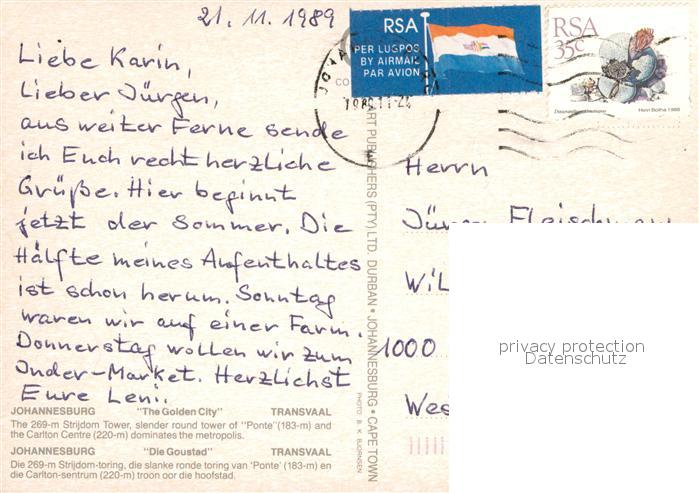 21. 11. 1989
Liebe Karin,
Lieber Jürgen,
aus weiter Ferne sende
ich Euch recht herzliche
Grüße. Hier beginnt
jetzt der Sommer. Die
Hälfte meines Aufenthaltes
ist schon herum. Sonntag
waren wir auf einer Farm.
Donnerstag wollen wir zum
Inder-Market. Herzlichst
Eure Leni.
JOHANNESBURG "The Golden City" TRANSVAAL
The 269-m Strijdom Tower, slender round tower of "Ponte" (183-m) and
the Carlton Centre (220-m) dominates the metropolis.
JOHANNESBURG "Die Goustad" TRANSVAAL
Die 269-m Strijdom-toring, die slanke ronde toring van 'Ponte' (183-m) en
die Carlton-sentrum (220-m) troon oor die hoofstad.
RSA
PER LUGPOS
BY AIRMAIL
PAR AVION
RSA
35c
Hein Botha 1988
ART PUBLISHERS (PTY) LTD. DURBAN • JOHANNESBURG • CAPE TOWN
PHOTO: B. K. BJORNSEN
Herrn
Jürgen
1000
privacy protection
Datenschutz